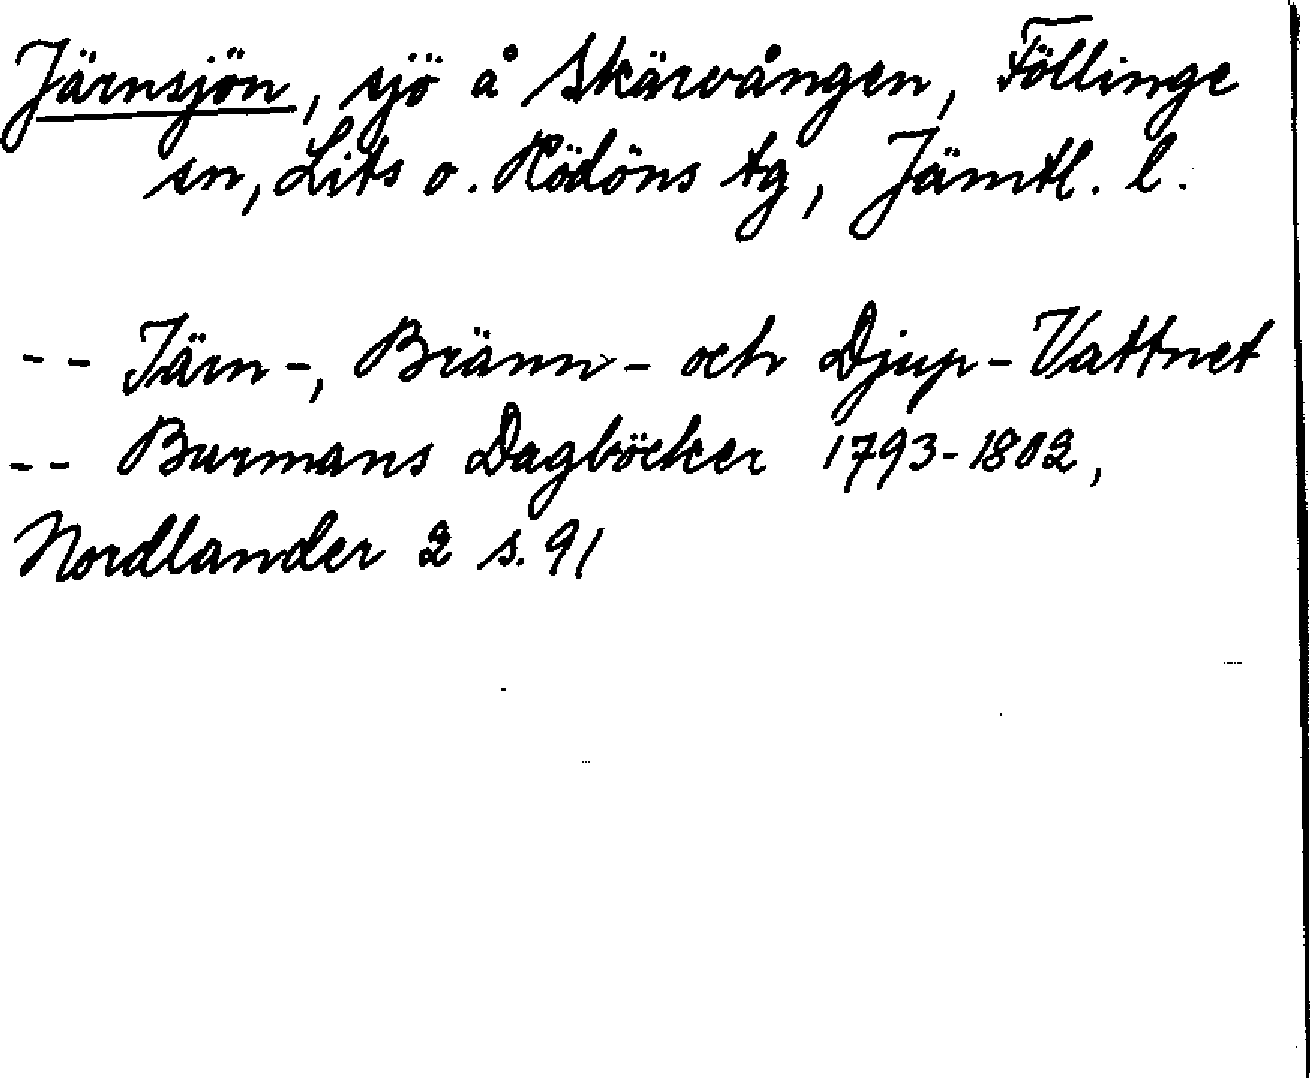 Järnsjön, sjö å Skärvången, Föllinge
sn, Lits o. Rödöns tg, Jämtl. l.
-- Järn-, Bränn- och Djup-Vattnet
-- Burmans Dagböcker 1793-1802,
Nordlander 2 s. 91